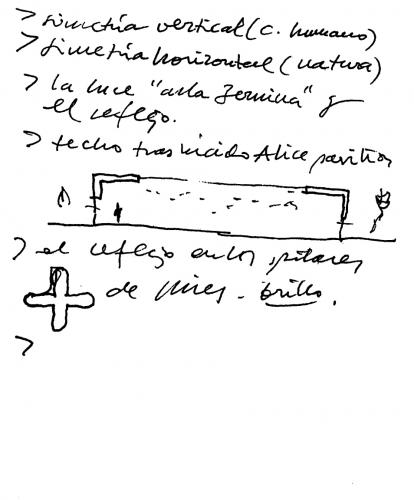 > simetría vertical (c. humano)
> simetría horizontal (natura)
> la luce "
el reflejo.
> techo traslucido Alice pavilion
> el reflejo en los pilares
de Mies - brillo.
>